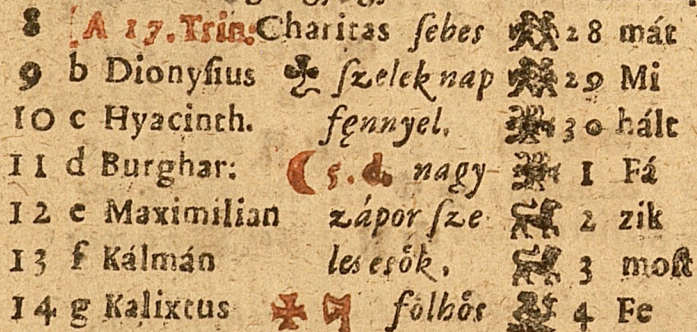 8 A 17. Trin: Charitas ſebes 28 mát
9 b Dionyſius ſzelek nap 29 Mi
10 c Hyacinth. fęnnyel. 30 hált
11 d Burghar: 5. d. nagy 1 Fá
12 e Maximilian zápor ſze 2 zik
13 f Kálmán les esők, 3 moſt
14 g Kalixtus fölhős 4 Fe